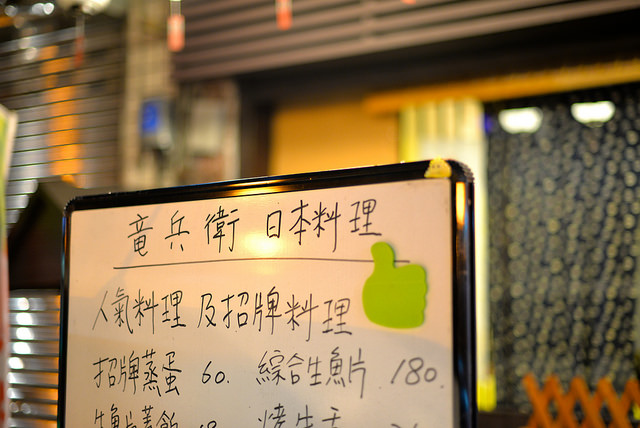 竜兵衛 日本料理
人氣料理 及招牌料理
招牌蒸蛋 60. 綜合生魚片 180.